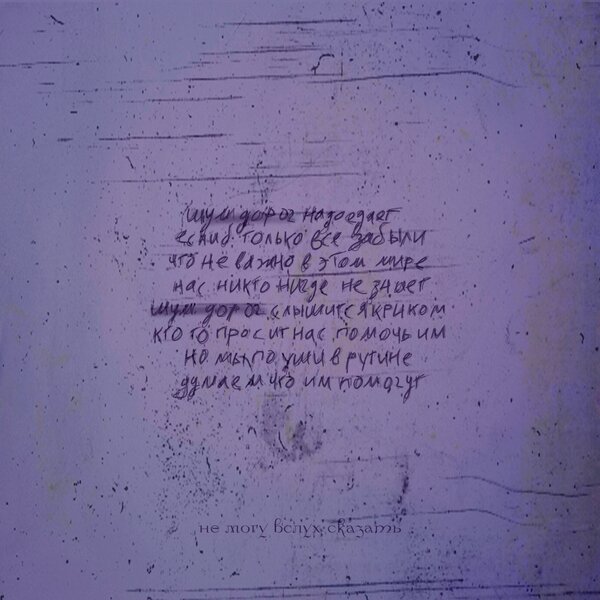 шум дорог надоедает
если б только все забыли
что не важно в этом мире
нас никто нигде не знает
шум дорог слышится криком
кто то просит нас помочь им
но мы по уши в рутине
думаем что им помогут
не могу вслух сказать